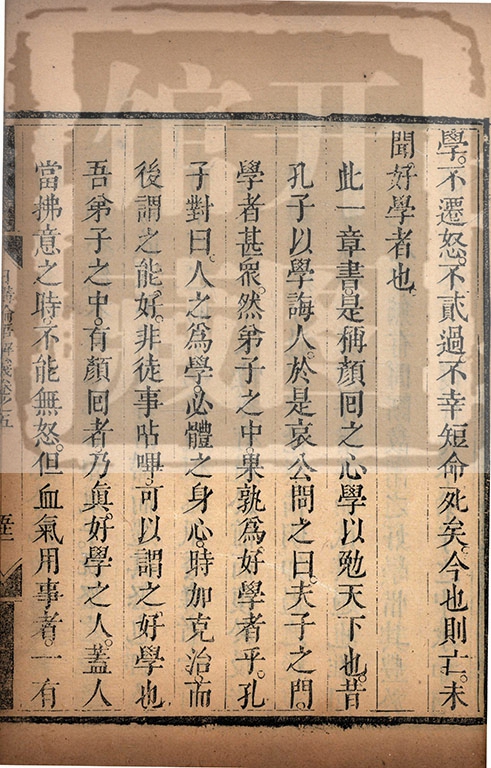 學。不遷怒。不貳過。不幸短命死矣。今也則亡。未
聞好學者也
此一章書。是稱顏回之心學以勉天下也。昔
孔子以學誨人。於是哀公問之曰。夫子之門。
學者甚衆。然弟子之中。果孰爲好學者乎。孔
子對曰。人之爲學。必體之身心。時加克治。而
後謂之能好。非徒事呫嗶。可以謂之好學也
吾弟子之中。有顏回者。乃眞好學之人。蓋人
當拂意之時。不能無怒。但血氣用事者。一有
日講四書解義卷之五